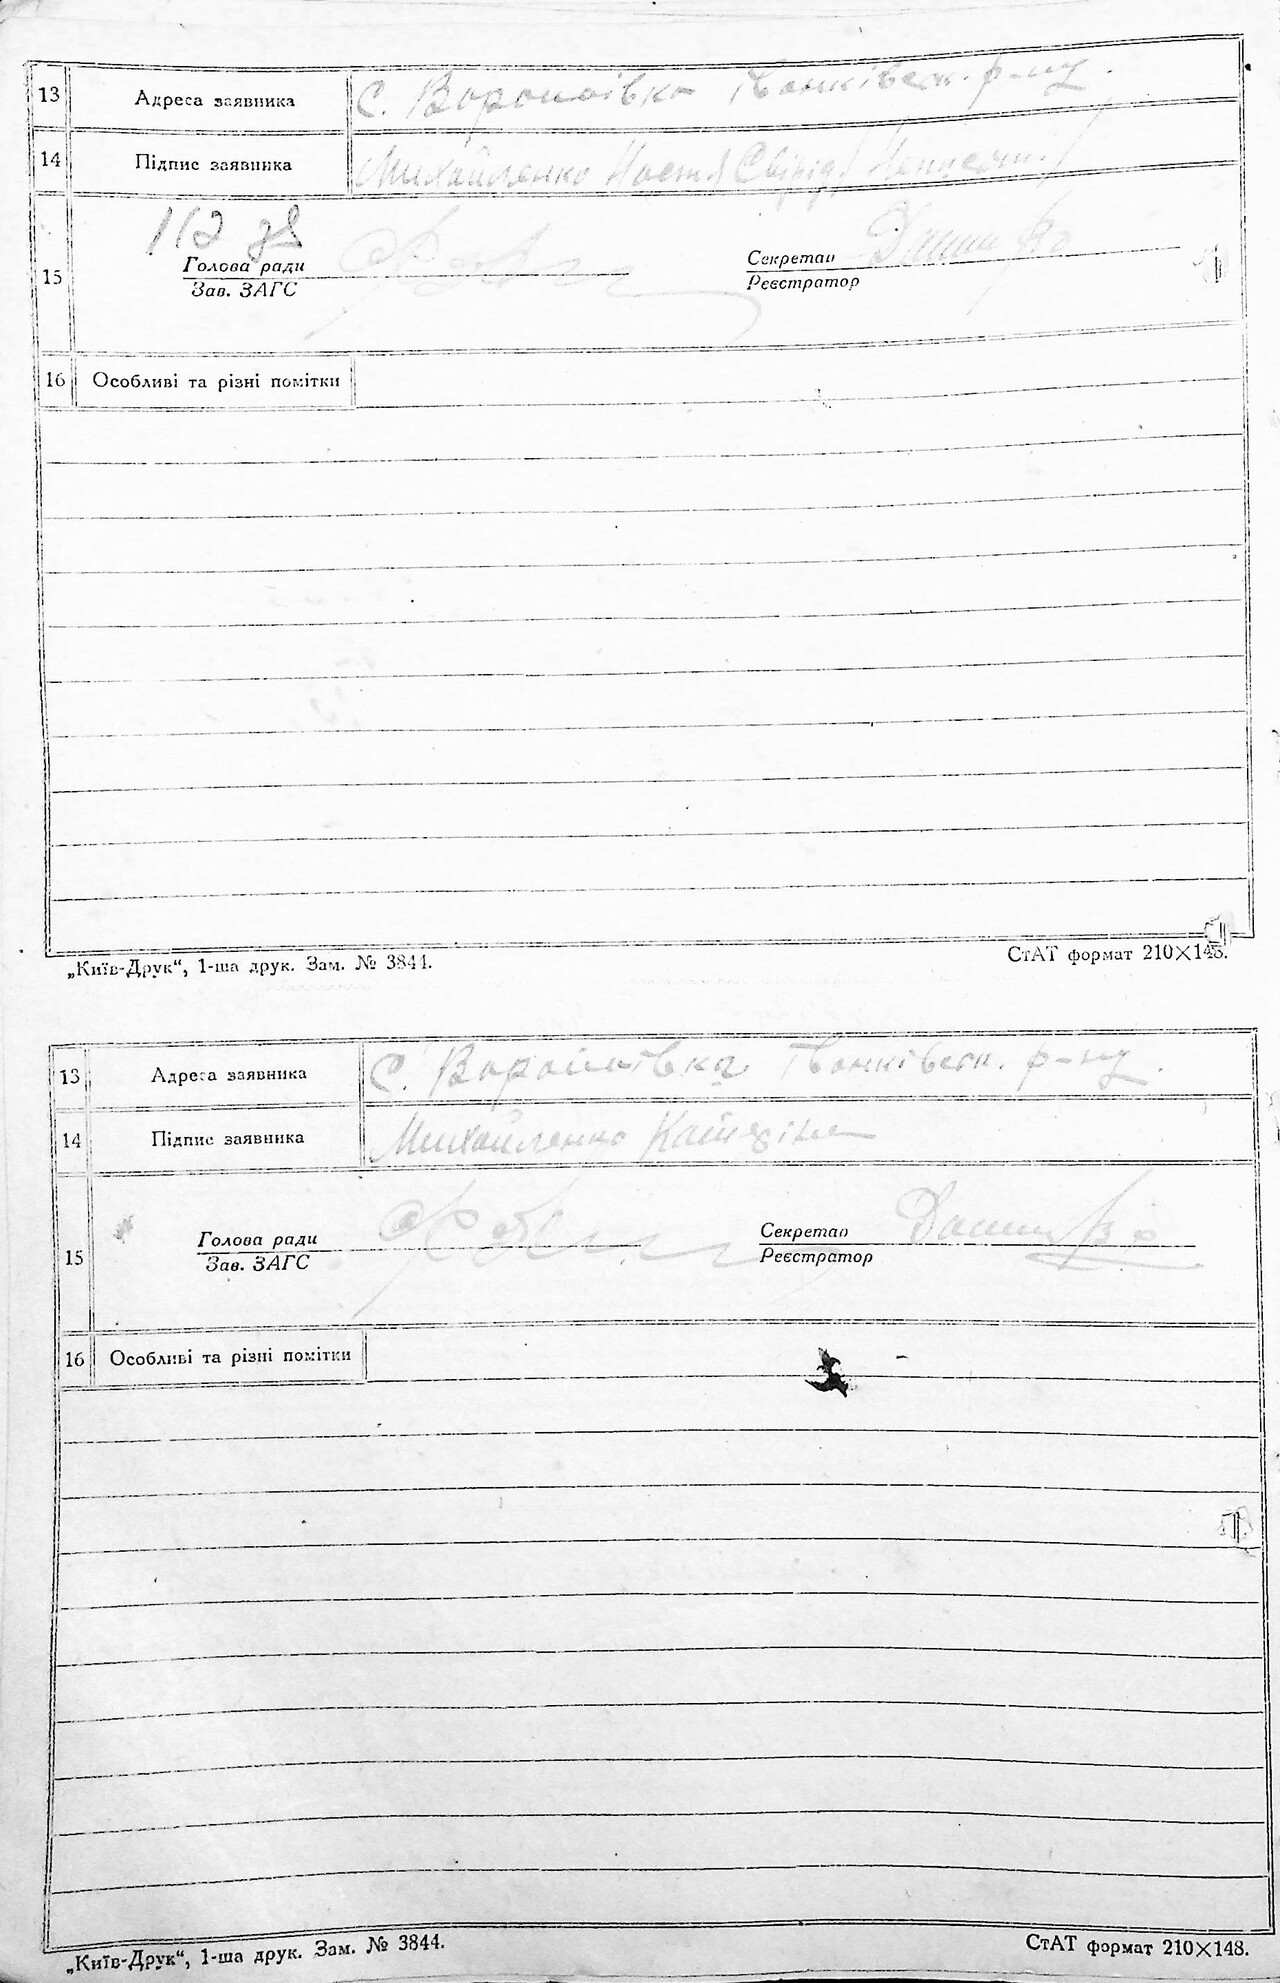 13 Адреса заявника с. Воропаївка Іванківськ. р-ну.
14 Підпис заявника Михайленко Настя
15 Голова ради Секретар
Зав. ЗАГС Реєстратор
16 Особливі та різні помітки
„Київ-Друк“, 1-ша друк. Зам. № 3844. СтАТ формат 210×148.
13 Адреса заявника с. Воропаївка Іванківськ. р-ну.
14 Підпис заявника Михайленко Катеріна
15 Голова ради Секретар
Зав. ЗАГС Реєстратор
16 Особливі та різні помітки
„Київ-Друк“, 1-ша друк. Зам. № 3844. СтАТ формат 210×148.